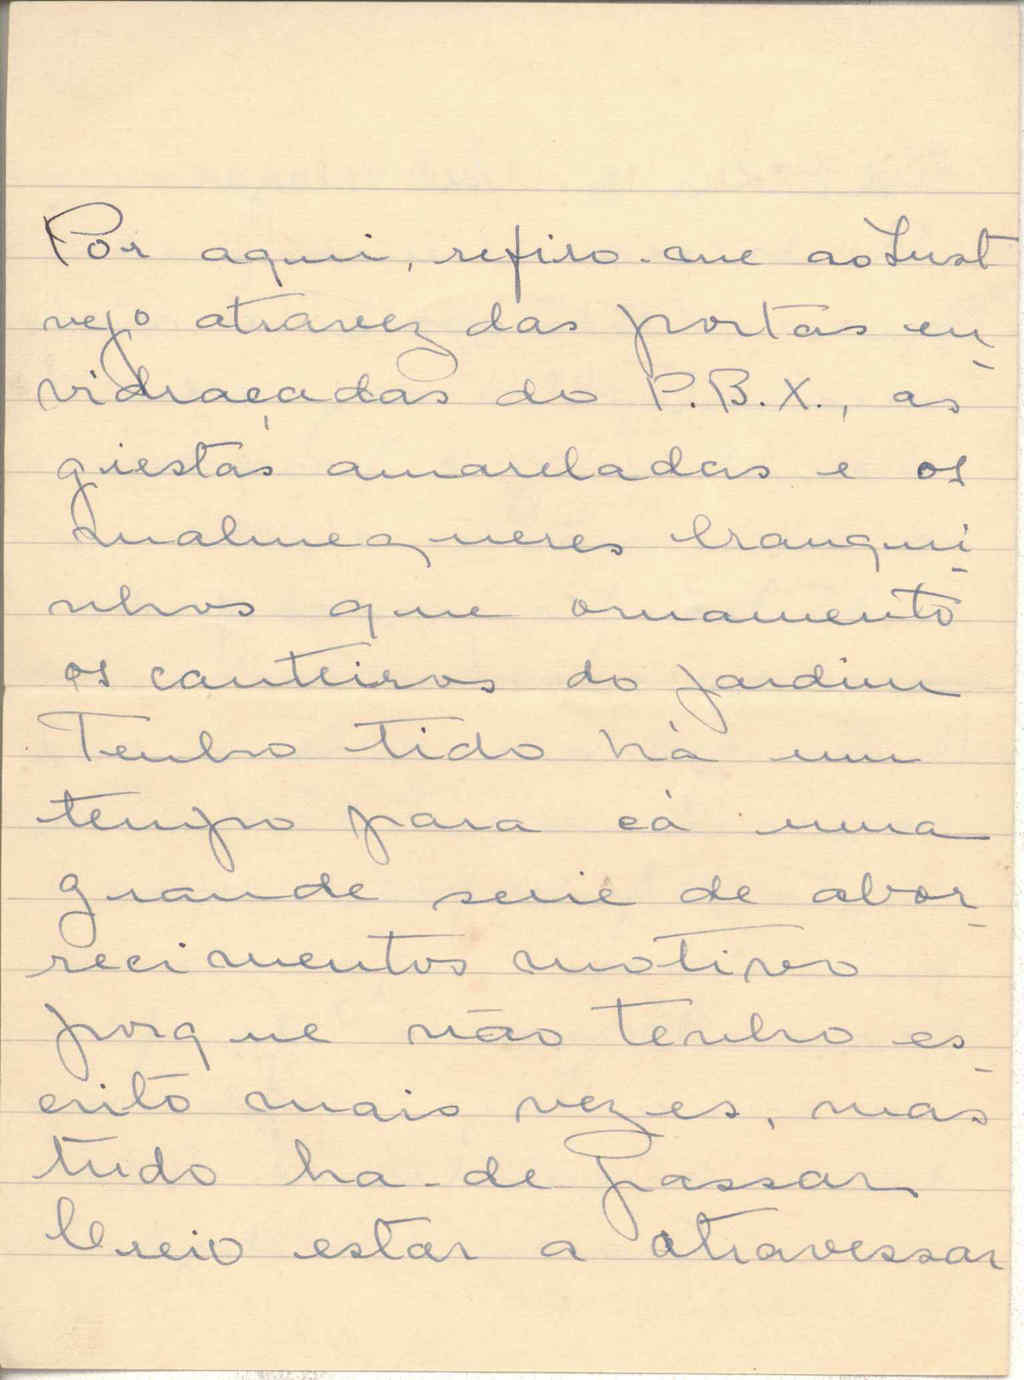 Por aqui, refiro-me ao Inst
vejo atravez das portas en-
vidraçadas do P.B.X., as
giestas amareladas e os
malmequeres branqui-
nhos que ornamentõ
os canteiros do jardim
Tenho tido há um
tempo para cá uma
grande serie de abor-
recimentos motivo
porque não tenho es-
crito mais vezes, mas
tudo ha-de passar
Creio estar a atravessar